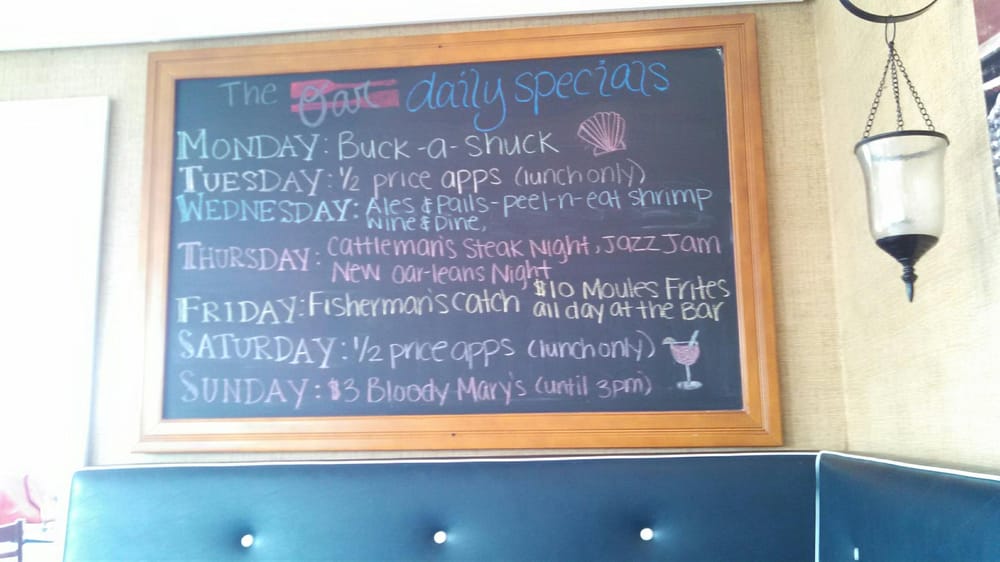 The Oar daily specials
MONDAY: Buck-a-shuck
TUESDAY: 1/2 price apps (lunch only)
WEDNESDAY: Ales & Pails-peel-n-eat shrimp
Wine & Dine,
THURSDAY: Cattleman's Steak Night, Jazz Jam
New oar-leans Night
FRIDAY: Fisherman's catch $10 Moules Frites
all day at the Bar
SATURDAY: 1/2 price apps (lunch only)
SUNDAY: $3 Bloody Mary's (until 3pm)